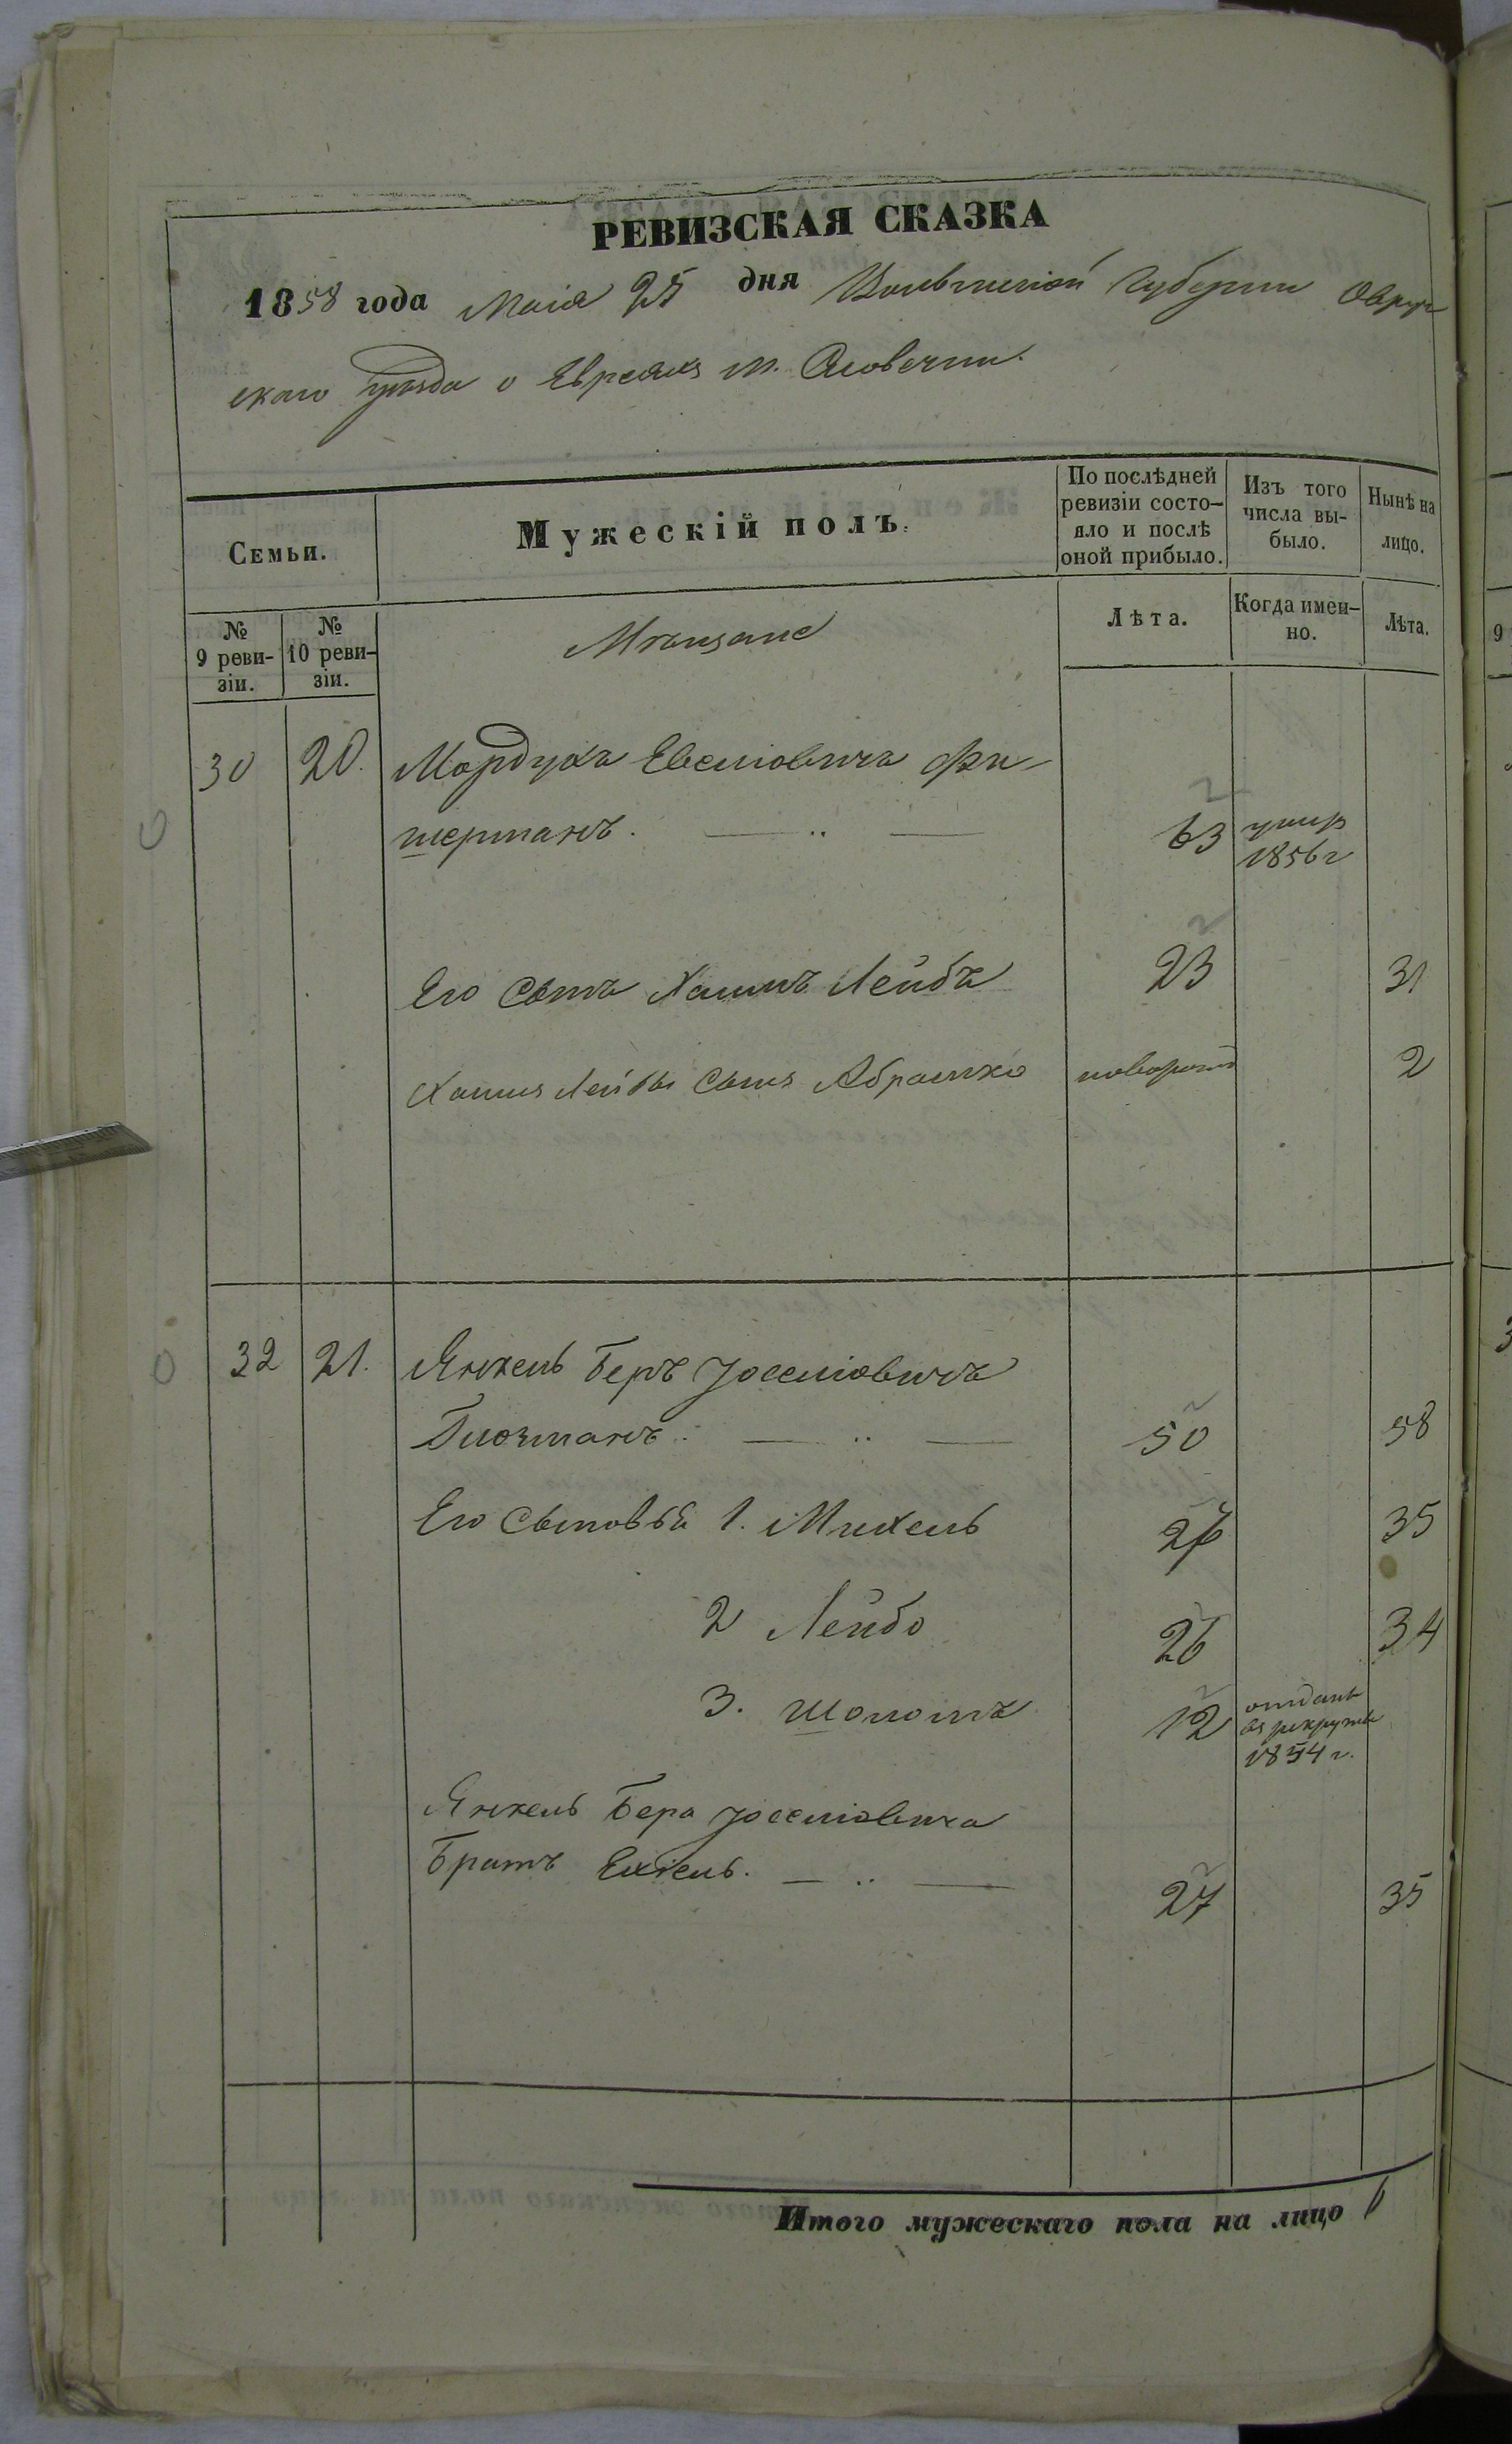 РЕВИЗСКАЯ СКАЗКА
1858 года Маія 25 дня Волынской Губерніи Овруч
скаго уѣзда о Евреяхъ м. Словечни.
Семьи.
Мужескій полъ.
По послѣдней ревизіи состо-
яло и послѣ оной прибыло.
Изъ того числа вы-
было.
Нынѣ на лицо.
№ 9 реви-
зіи.
№ 10 реви-
зіи.
Мѣщане
Лѣта.
Когда имен-
но.
Лѣта.
30 20. Мордухъ Евселіовичъ Фи-
шерманъ. 63 умер 1856 г
Его Сынъ Хаимъ Лейбъ 23 31
Хаимъ Лейбы Сынъ Абрамко новорожд 2
32 21. Янкель Беръ Іосселіовичъ
Глозманъ. 50 58
Его Сыновья 1. Михель 27 35
2 Лейбо 26 34
3. Шоломъ 12 отданъ
въ рекруты
1854 г.
Янкель Бера Іосселіовича
Братъ Ехіель. 27 35
Итого мужескаго пола на лицо